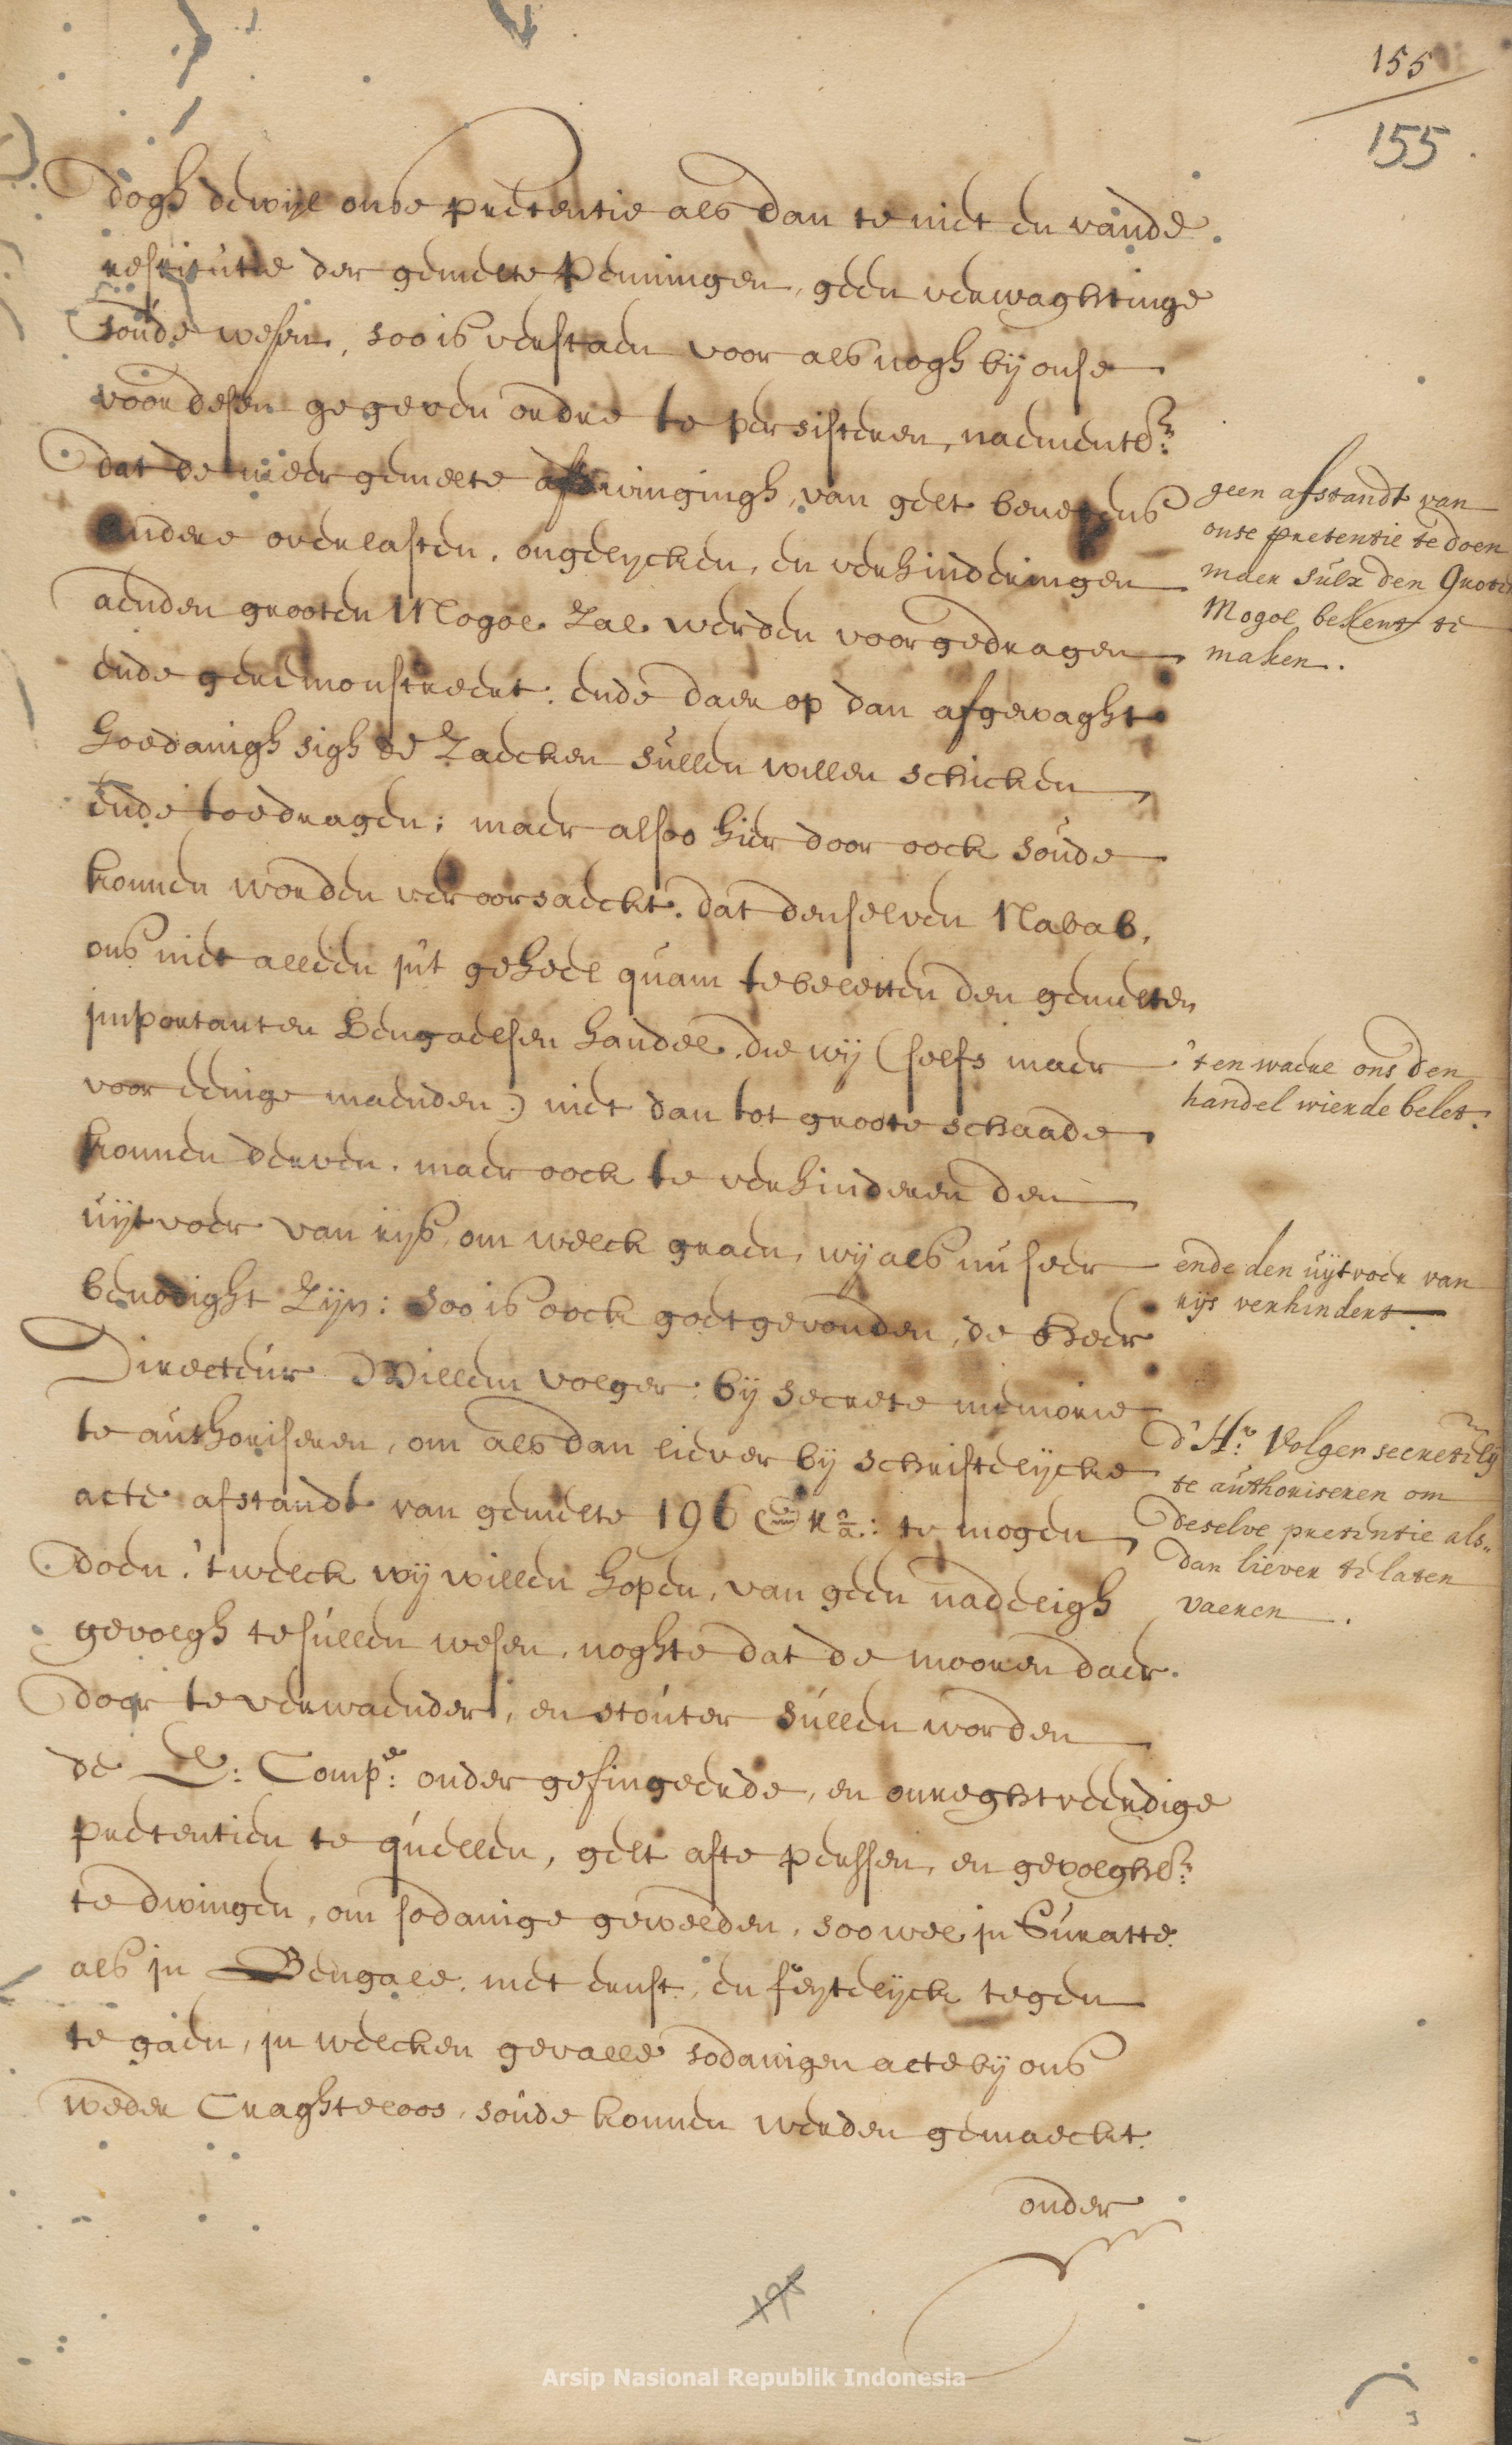 155
155
dogh dewijl onse pretentie als dan te niet en vande
restitutie der gemelte Penningen, geen verwaghtinge
soude wesen, soo is verstaen voor als nogh bij onse
voor desen gegeven ordre te persisteren, naementl:
dat de meer gemelte afdwingingh, van gelt benevens
andere overlasten, ongelijcken, en verhinderingen
aenden grooten Mogol zal werden voorgedragen
ende geremonstreert: ende daer op dan afgewaght
hoedanigh sigh de zaecken sullen willen schicken
ende toedragen; maer alsoo hier door oock soude
konnen worden veroorsaeckt, dat denselven Nabab,
ons niet alleen jnt geheel quam te beletten den gemelten
jmportanten Bengaelsen handel, die wij (selfs maer
voor eenige maenden) niet dan tot groote schaade
konnen derven, maer oock te verhinderen den
uijtvoer van rijs, om welck graen, wij als nu seer
benodight zijn: soo is oock goetgevonden, de heer
Directeur Willem volger bij secrete memorie
te authoriseren, om als dan liever bij schriftelijcke
acte afstandt van gemelte 196 m/ ra: te mogen
doen, 't welck wij willen hopen, van geen nadeeligh
gevolgh te sullen wesen, noghte dat de mooren daer
door te verwaender, en stouter sullen worden
de E: Compe: onder gefingeerde, en onreghtveerdige
pretentien te quellen, gelt afte perssen, en gevolghl:
te dwingen, om sodanige gewelden, soo wel jn Suratte
als jn Bengale, met ernst, en feijtelijck tegen
te gaen, jn welcken gevalle sodanigen acte bij ons
weder Craghteloos, soude konnen werden gemaeckt
onder
geen afstandt van
onse pretentie te doen
maer sulx den Groten
Mogol bekent te
maken.
't en waere ons den
handel wierde belet.
ende den uijtvoer van
rijs verhindert.
d'Hr. Volger secretelij
te authoriseren om
deselve pretentie als„
dan liever te laten
vaeren.
195
Arsip Nasional Republik Indonesia